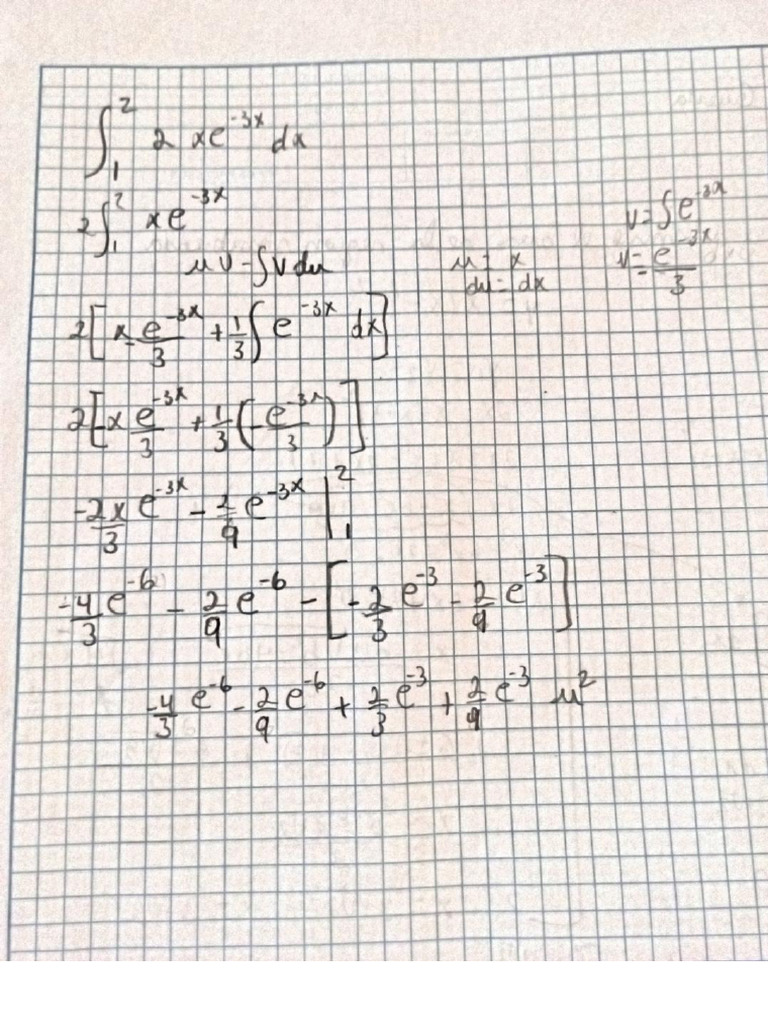 ∫₁² 2 xe^{-3x} dx
2∫₁² xe^{-3x}
v = ∫e^{-3x}
μv - ∫v dμ
μ = x
dμ = dx
v = -e^{-3x}/3
2[x -e^{-3x}/3 + 1/3 ∫ e^{-3x} dx]
2[-x e^{-3x}/3 + 1/3 (-e^{-3x}/3)]
-2x/3 e^{-3x} - 2/9 e^{-3x} |₁²
-4/3 e^{-6} - 2/9 e^{-6} - [-2/3 e^{-3} - 2/9 e^{-3}]
-4/3 e^{-6} - 2/9 e^{-6} + 2/3 e^{-3} + 2/9 e^{-3} μ²